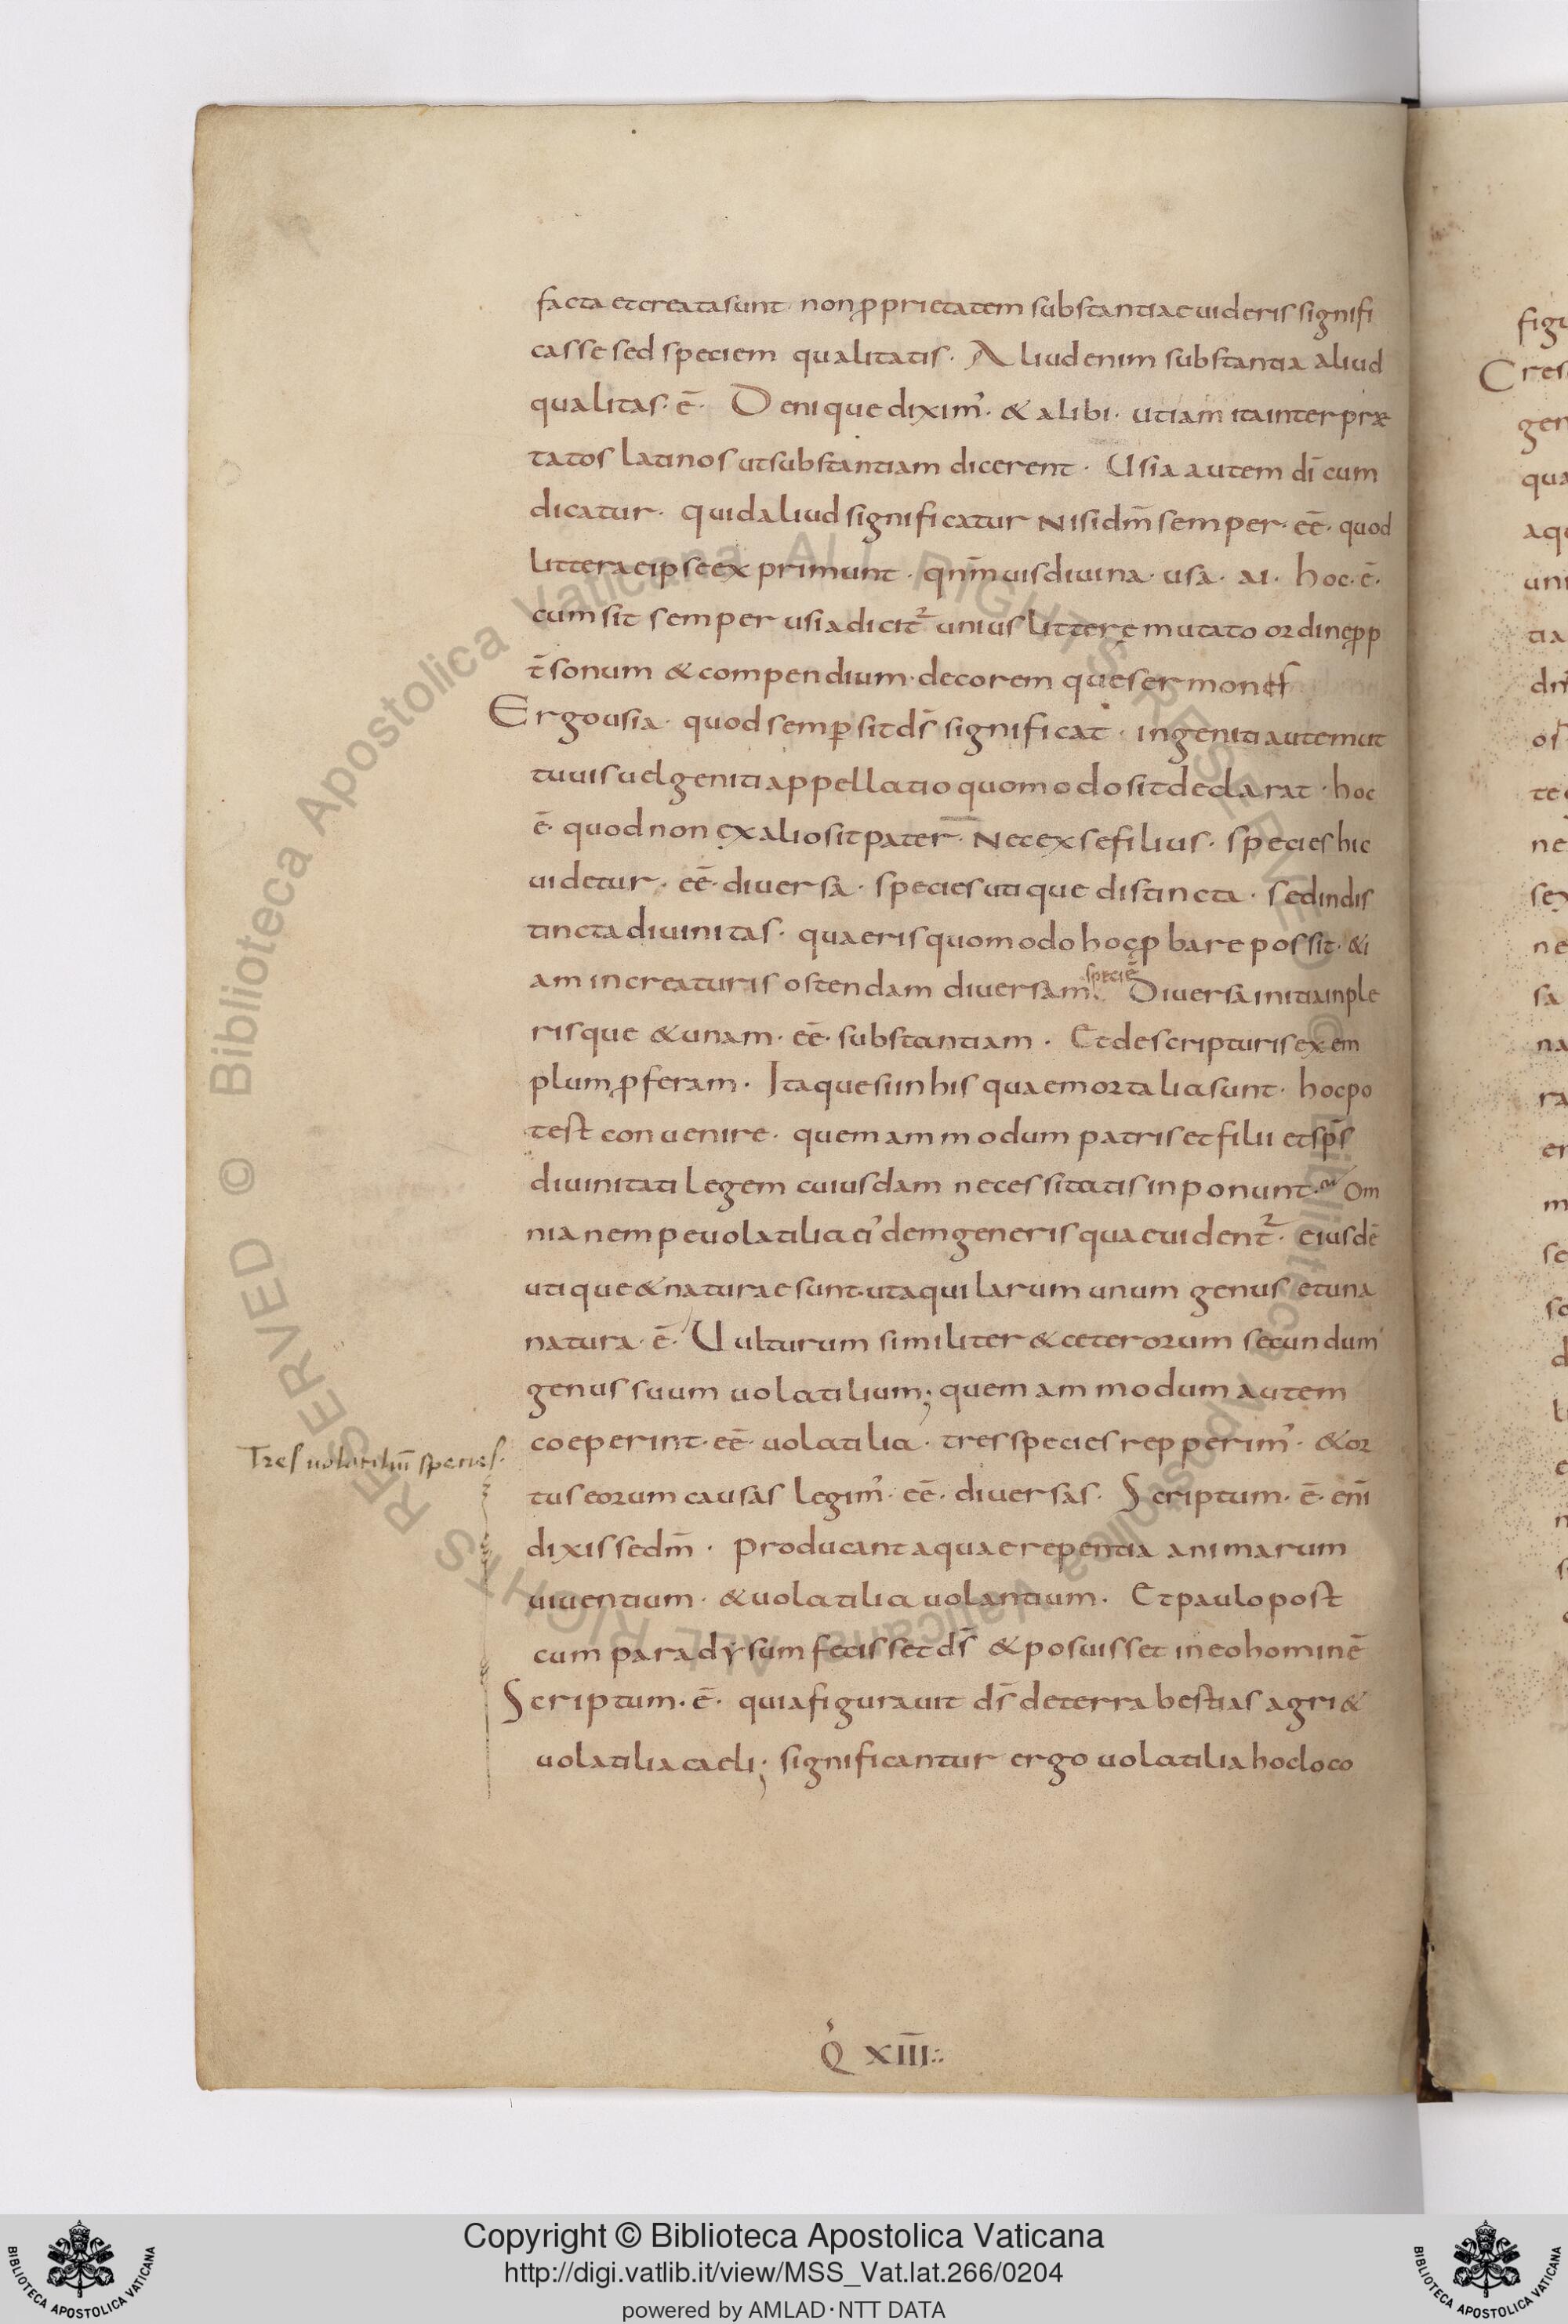 facta et creata sunt· non ꝓprietatem substantiae uideris signifi
casse sed speciem qualitatis· Aliud enim substantia aliud
qualitas· ē· Denique diximꝰ· & alibi· utiam ita interpræ
tatos latinos ut substantiam dicerent· Usia autem dī cum
dicatur· quid aliud significatur Nisi dm̄ semper· eē· quod
litterae ipse exprimunt· qnm̄ uis diuina· usa· ai· hoc· ē·
cum sit semper usia dicit᷑ unius litterę mutato ordine ꝓp
t̄ sonum & compendium· decoremque sermonis
Ergo usia· quod semꝑ sit ds̄ significat· ingeniti autem ut
tu uis uel geniti appellatio quomodo sit declarat· hoc
ē· quod non ex alio sit pater· Nec ex se filius· species hic
uidetur· eē· diuersa· species utique distincta· sed indis
tincta diuinitas· quaeris quomodo hoc ꝓbare possit· &i
am in creaturis ostendam diuersam speciē Diuersa initia inple
risque & unam· eē· substantiam· Et de scripturis exem
plum ꝓferam· Itaque si in his quae mortalia sunt· hoc po
test conuenire· quemammodum patris et filii et sp̄s
diuinitati legem cuiusdam necessitatis inponunt· Om
nia nempe uolatilia eiꝰdem generis quae uident᷑· eiusdē
utique & naturae sunt· ut aquilarum unum genus et una
natura· ē· Uulturum similiter & ceterorum secundum
genus suum uolatilium; quemammodum autem
coeperint· eē· uolatilia· tres species repperimꝰ· & or
Tres uolatiliū species·
tus eorum causas legimꝰ· eē· diuersas· Scriptum· ē· enī
dixisse dm̄· producant aquae repentia animarum
uiuentium· & uolatilia uolantium· Et paulo post
cum paradysum fecisset ds̄ & posuisset in eo hominē
Scriptum· ē· quia figurauit ds̄ de terra bestias agri &
uolatilia caeli; significantur ergo uolatilia hoc loco
Q XIII
figu
Cres
gen
qua
aqu
uni
tia
Copyright © Biblioteca Apostolica Vaticana
http://digi.vatlib.it/view/MSS_Vat.lat.266/0204
powered by AMLAD·NTT DATA
BIBLIOTECA APOSTOLICA VATICANA
BIBLIOTECA APOSTOLICA VATICANA
© Biblioteca Apostolica Vaticana ALL RIGHTS RESERVED © Biblioteca Apostolica Vaticana ALL RIGHTS RESERVED